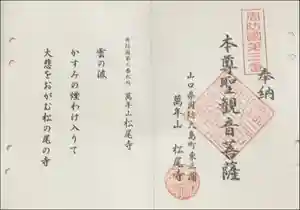 周防國第三番
奉納
本尊聖觀音菩薩
山口県周防大島町東三蒲
萬年山 松尾寺
萬年山松尾寺
雲の波
かすみの煙わけ入りて
大慈をおがむ松の尾の寺